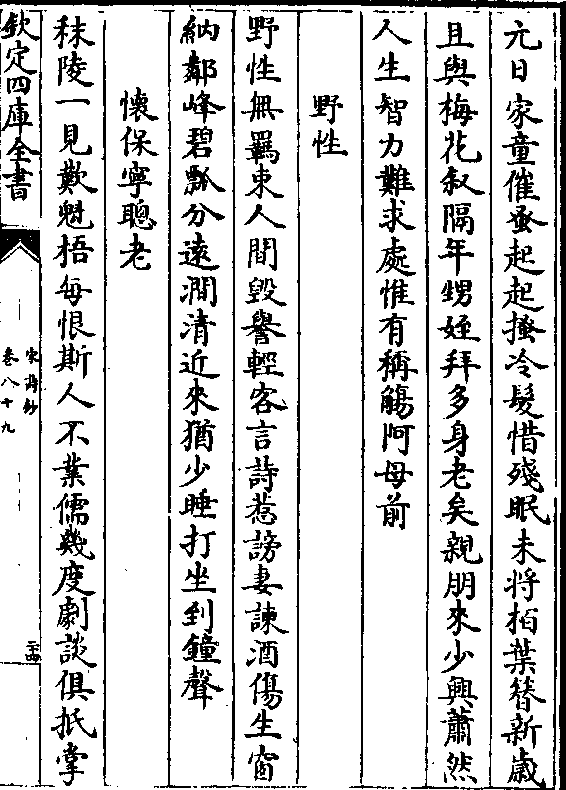 元日家童催蚤起起搔冷髪惜殘眠未將栢葉簮新歳
且與梅花叙隔年甥姪拜多身老矣親朋來少興蕭然
人生智力難求處惟有稱觴阿母前
野性
野性無羈束人間毀譽輕客言詩惹謗妻諫酒傷生窗
納鄰峰碧瓢分遠澗清近來猶少睡打坐到鐘聲
懐保寧聰老
秣陵一見歎魁梧每恨斯人不業儒幾度劇談俱抵掌
欽定四庫全書
宋詩鈔
卷八十九
二十四